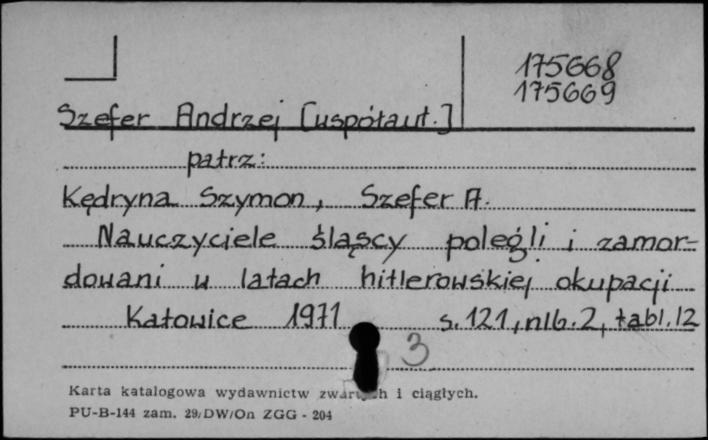 175668
175669
Szefer Andrzej [współaut.]
patrz:
Kędryna Szymon, Szefer A.
Nauczyciele śląscy polegli i zamor-
dowani w latach hitlerowskiej okupacji
Katowice 1971 s. 121, nlb. 2, tabl. 12
3
Karta katalogowa wydawnictw i ciągłych.
PU-B-144 zam. 29/DW/On ZGG - 204